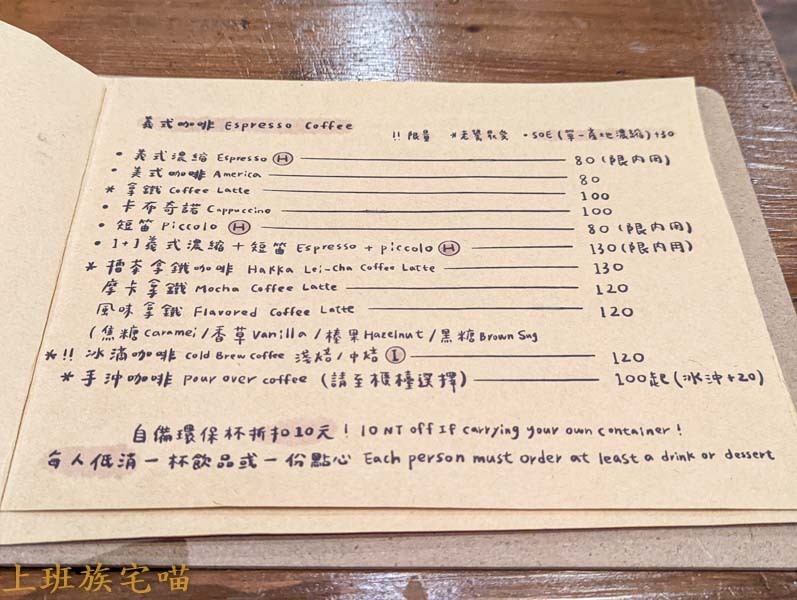 義式咖啡 Espresso Coffee
!! 限量 *老饕最愛 • SOE (單一產地濃縮)+30
• 義式濃縮 Espresso Ⓗ 80 (限內用)
• 美式咖啡 America 80
* 拿鐵 Coffee Latte 100
• 卡布奇諾 Cappuccino 100
• 短笛 Piccolo Ⓗ 80 (限內用)
• 1+1義式濃縮+短笛 Espresso + piccolo Ⓗ 130(限內用)
* 擂茶拿鐵咖啡 Hakka Lei-cha Coffee Latte 130
摩卡拿鐵 Mocha Coffee Latte 120
風味拿鐵 Flavored Coffee Latte 120
(焦糖 Caramel/香草 Vanilla/榛果 Hazelnut/黑糖 Brown Sug
*!! 冰滴咖啡 Cold Brew Coffee 淺焙/中焙 Ⓘ 120
* 手沖咖啡 pour over coffee (請至櫃檯選擇) 100起(冰沖+20)
自備環保杯折扣10元! 10 NT off If carrying your own container!
每人低消一杯飲品或一份點心 Each person must order at least a drink or dessert
上班族宅喵